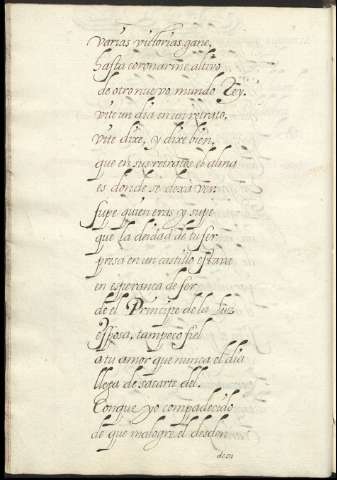 varias victorias gane,
hasta coronarme altivo
de otro nuevo mundo Rey.
vite un dia en un retrato,
vite dixe, y dixe bien,
que en sus retratos el alma
es donde se dexa ver.
supe quien eras y supe
que la deidad de tu ser
presa en un castillo estave
en esperanca de ser
de el Principe de la luz
esposa, tampoco fiel
a tu amor que nunca el dia
llega de sacarte del.
Conque yo compadecido
de que malogre el desden